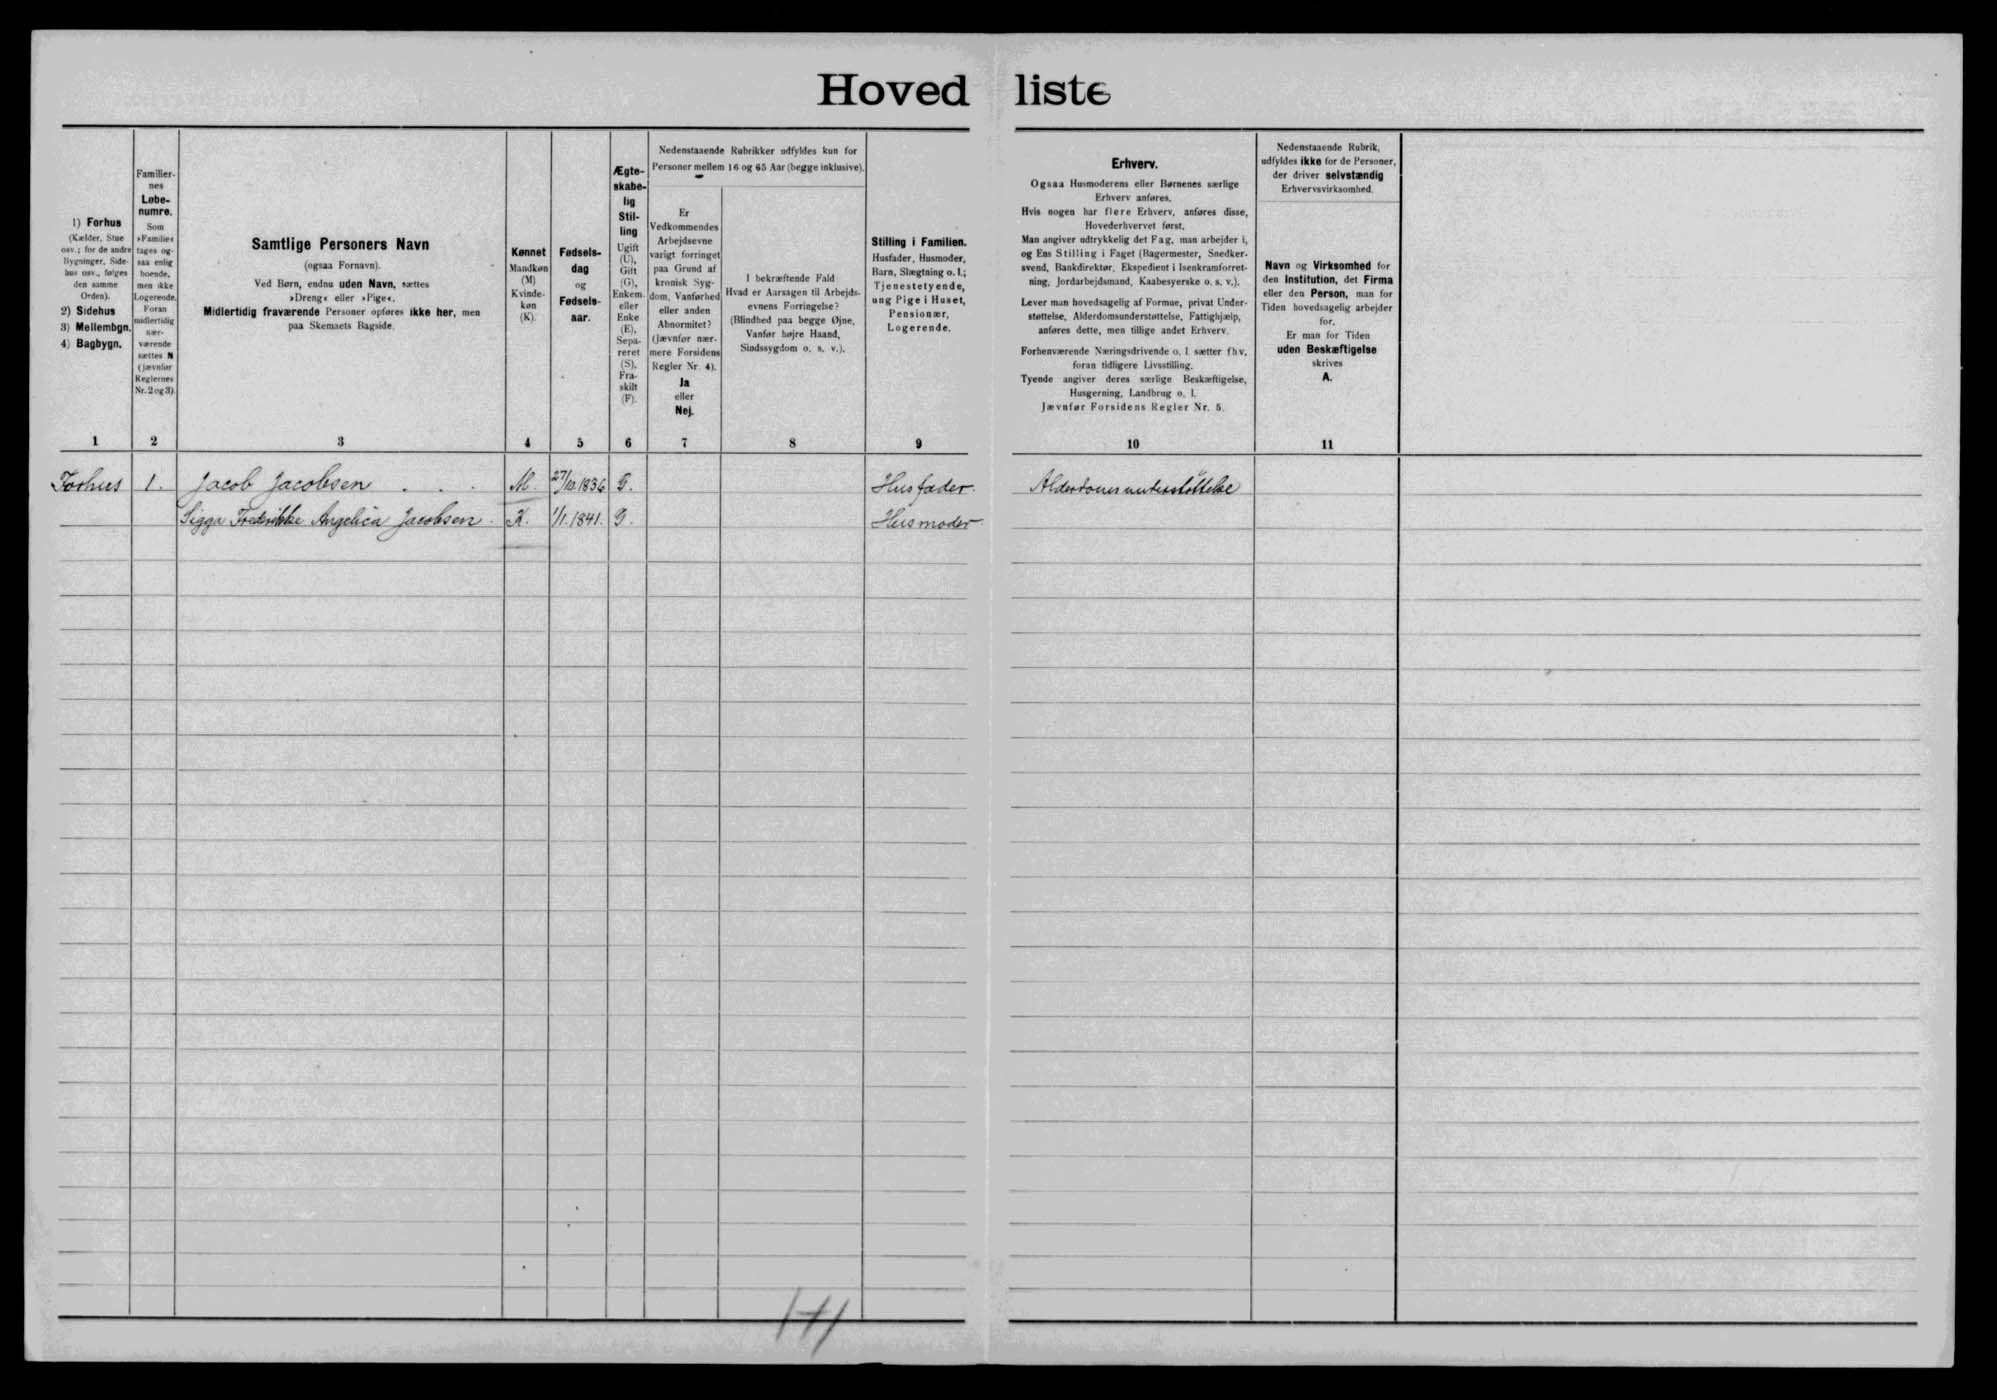 Hovedliste
1) Forhus
(Kælder, Stue
osv.; for de andre
Bygninger, Side-
hus osv., følges
den samme
Orden).
2) Sidehus
3) Mellembgn.
4) Bagbygn.
1
Familier-
nes
Løbe-
numre.
Som
»Familie«
tages og-
saa enlig
boende,
men ikke
Logerende.
Foran
midlertidig
nær-
værende
sættes N
(jævnfør
Reglernes
Nr. 2 og 3)
2
Samtlige Personers Navn
(ogsaa Fornavn).
Ved Børn, endnu uden Navn, sættes
»Dreng« eller »Pige«.
Midlertidig fraværende Personer opføres ikke her, men
paa Skemaets Bagside.
3
Kønnet
Mandkøn
(M)
Kvinde-
køn
(K).
4
Fødsels-
dag
og
Fødsels-
aar.
5
Ægte-
skabe-
lig
Stil-
ling
Ugift
(U),
Gift
(G),
Enkem.
eller
Enke
(E),
Sepa-
reret
(S),
Fra-
skilt
(F).
6
Nedenstaaende Rubrikker udfyldes kun for
Personer mellem 16 og 65 Aar (begge inklusive).
Er
Vedkommendes
Arbejdsevne
varigt forringet
paa Grund af
kronisk Syg-
dom, Vanførhed
eller anden
Abnormitet?
(Jævnfør nær-
mere Forsidens
Regler Nr. 4).
Ja
eller
Nej.
7
I bekræftende Fald
Hvad er Aarsagen til Arbejds-
evnens Forringelse?
(Blindhed paa begge Øjne,
Vanfør højre Haand,
Sindssygdom o. s. v.).
8
Stilling i Familien.
Husfader, Husmoder,
Barn, Slægtning o. l.;
Tjenestetyende,
ung Pige i Huset,
Pensionær,
Logerende.
9
Erhverv.
Ogsaa Husmoderens eller Børnenes særlige
Erhverv anføres.
Hvis nogen har flere Erhverv, anføres disse,
Hovederhvervet først.
Man angiver udtrykkelig det Fag, man arbejder i,
og Ens Stilling i Faget (Bagermester, Snedker-
svend, Bankdirektør, Ekspedient i Isenkramforret-
ning, Jordarbejdsmand, Kaabesyerske o. s. v.).
Lever man hovedsagelig af Formue, privat Under-
støttelse, Alderdomsunderstøttelse, Fattighjælp,
anføres dette, men tillige andet Erhverv.
Forhenværende Næringsdrivende o. l. sætter fhv.
foran tidligere Livsstilling.
Tyende angiver deres særlige Beskæftigelse,
Husgerning, Landbrug o. l.
Jævnfør Forsidens Regler Nr. 5.
10
Nedenstaaende Rubrik,
udfyldes ikke for de Personer,
der driver selvstændig
Erhvervsvirksomhed.
Navn og Virksomhed for
den Institution, det Firma
eller den Person, man for
Tiden hovedsagelig arbejder
for.
Er man for Tiden
uden Beskæftigelse
skrives
A.
11
Forhus 1. Jacob Jacobsen . . . M. 27/10.1836 G. Husfader. Alderdomsunderstøttelse
Sigga Fredrikke Angelica Jacobsen. K. 1/1.1841. G. Husmoder.